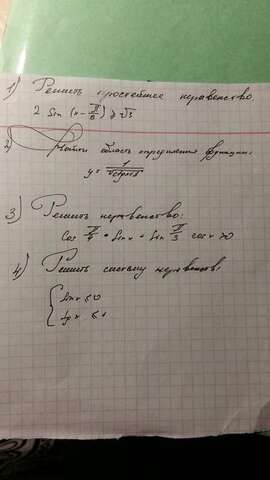 1) Решить простейшее неравенство.
2 Sin (x - π/6) ≥ √3
2) Найти область определения функции:
3) Решить неравенство:
Cos π/4 • Sin x - Sin π/3 cos x > 0
4) Решить систему неравенств:
{ Sin x ≤ 0
tg x ≤ 1